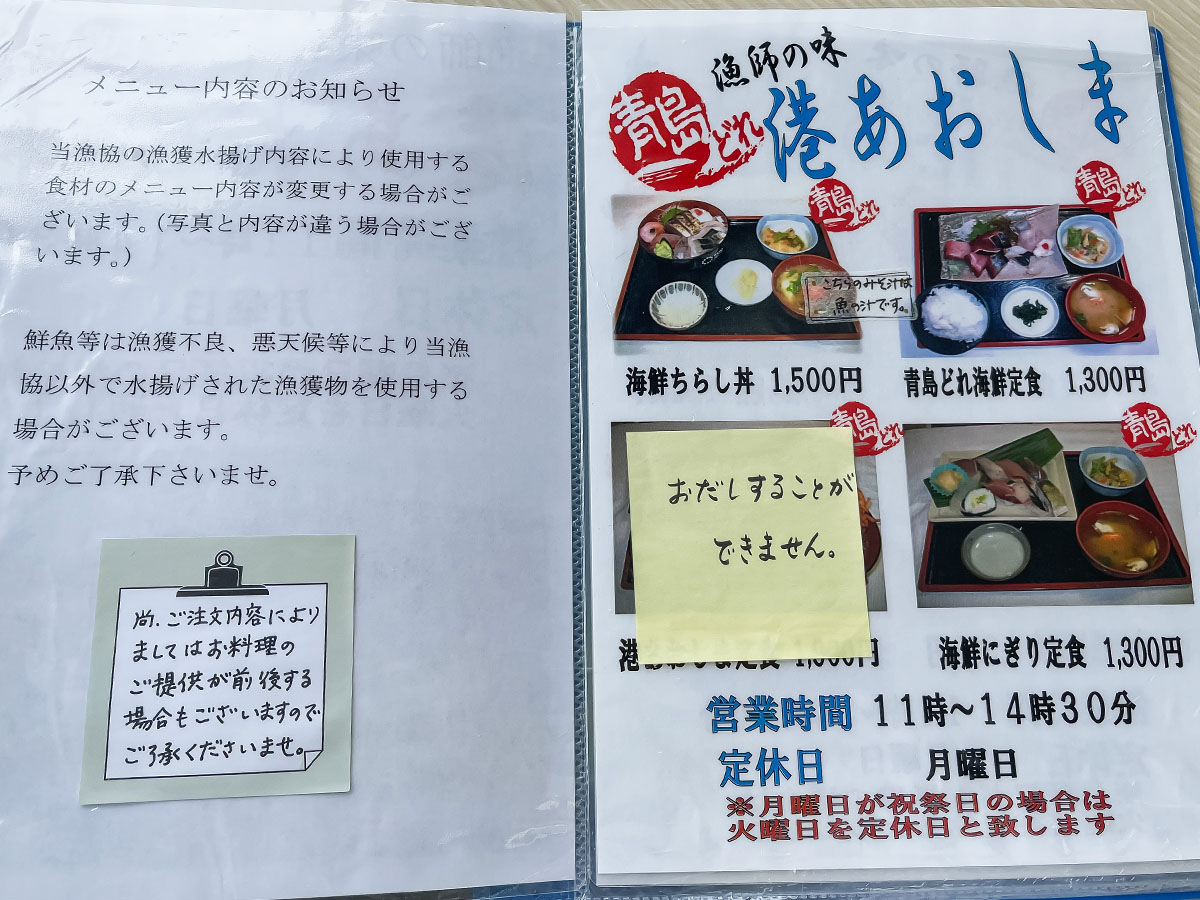 メニュー内容のお知らせ
当漁協の漁獲水揚げ内容により使用する
食材のメニュー内容が変更する場合がご
ざいます。（写真と内容が違う場合がござ
います。）
鮮魚等は漁獲不良、悪天候等により当漁
協以外で水揚げされた漁獲物を使用する
場合がございます。
予めご了承下さいませ。
尚、ご注文内容により
ましてはお料理の
ご提供が前後する
場合もございますので
ご了承くださいませ。
漁師の味
青島どれ
港あおしま
青島どれ
青島どれ
こちらのみそ汁は
魚の汁です。
海鮮ちらし丼 1,500円
青島どれ海鮮定食 1,300円
青島どれ
青島どれ
おだしすることが
できません。
港 定食 円
海鮮にぎり定食 1,300円
営業時間 11時～14時30分
定休日 月曜日
※月曜日が祝祭日の場合は
火曜日を定休日と致します